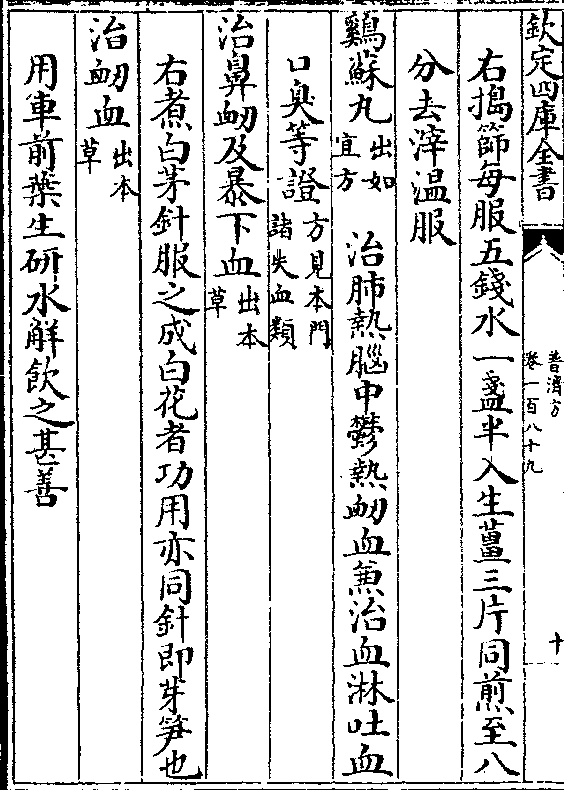 欽定四庫全書
普濟方
卷一百八十九
十
右搗篩每服五錢水一盞半入生薑三片同煎至八
分去滓温服
鷄蘇丸出如宜方 治肺熱腦中鬱熱衂血兼治血淋吐血
口臭等證方見本門諸失血類
治鼻衂及暴下血出本草
右煮白茅針服之成白花者功用亦同針即芽笋也
治衂血出本草
用車前葉生研水解飲之甚善